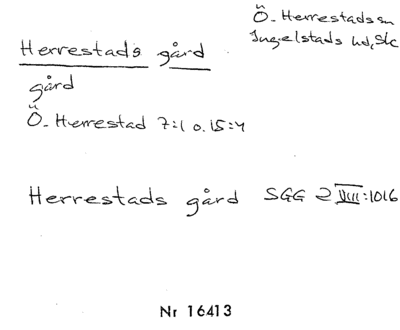 Ö. Herrestads sn
Ingelstads hd, Sk
Herrestads gård
gård
Ö. Herrestad 7:1 o. 15:4
Herrestads gård SGG 2 VIII:1016
Nr 16413